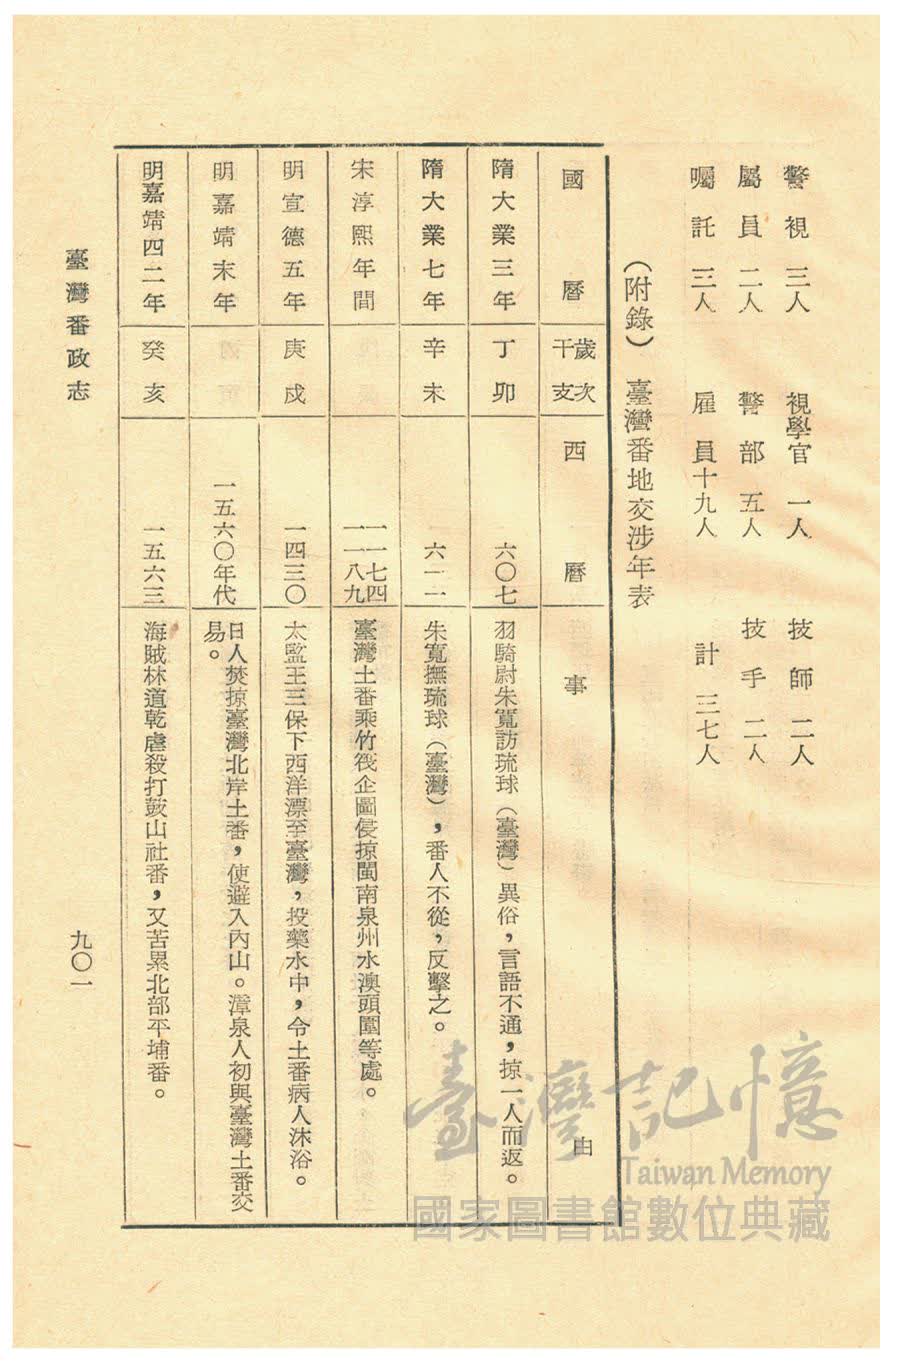 警視 三人 視學官 一人 技師 二人
屬員 二人 警部 五人 技手 二人
囑託 三人 雇員十九人 計 三七人
（附錄） 臺灣番地交涉年表
國曆 歲次干支 西曆 事由
隋大業三年 丁卯 六〇七 羽騎尉朱寬訪琉球（臺灣）異俗，言語不通，掠一人而返。
隋大業七年 辛未 六一一 朱寬撫琉球（臺灣），番人不從，反擊之。
宋淳熙年間 一一七四 一一八九 臺灣土番乘竹筏企圖侵掠閩南泉州水澳頭圍等處。
明宣德五年 庚戌 一四三〇 太監王三保下西洋漂至臺灣，投藥水中，令土番病人沐浴。
明嘉靖末年 一五六〇年代 日人焚掠臺灣北岸土番，使避入內山。漳泉人初與臺灣土番交
易。
明嘉靖四二年 癸亥 一五六三 海賊林道乾虐殺打鼓山社番，又苦累北部平埔番。
臺灣番政志
九〇一
臺灣記憶
Taiwan Memory
國家圖書館數位典藏